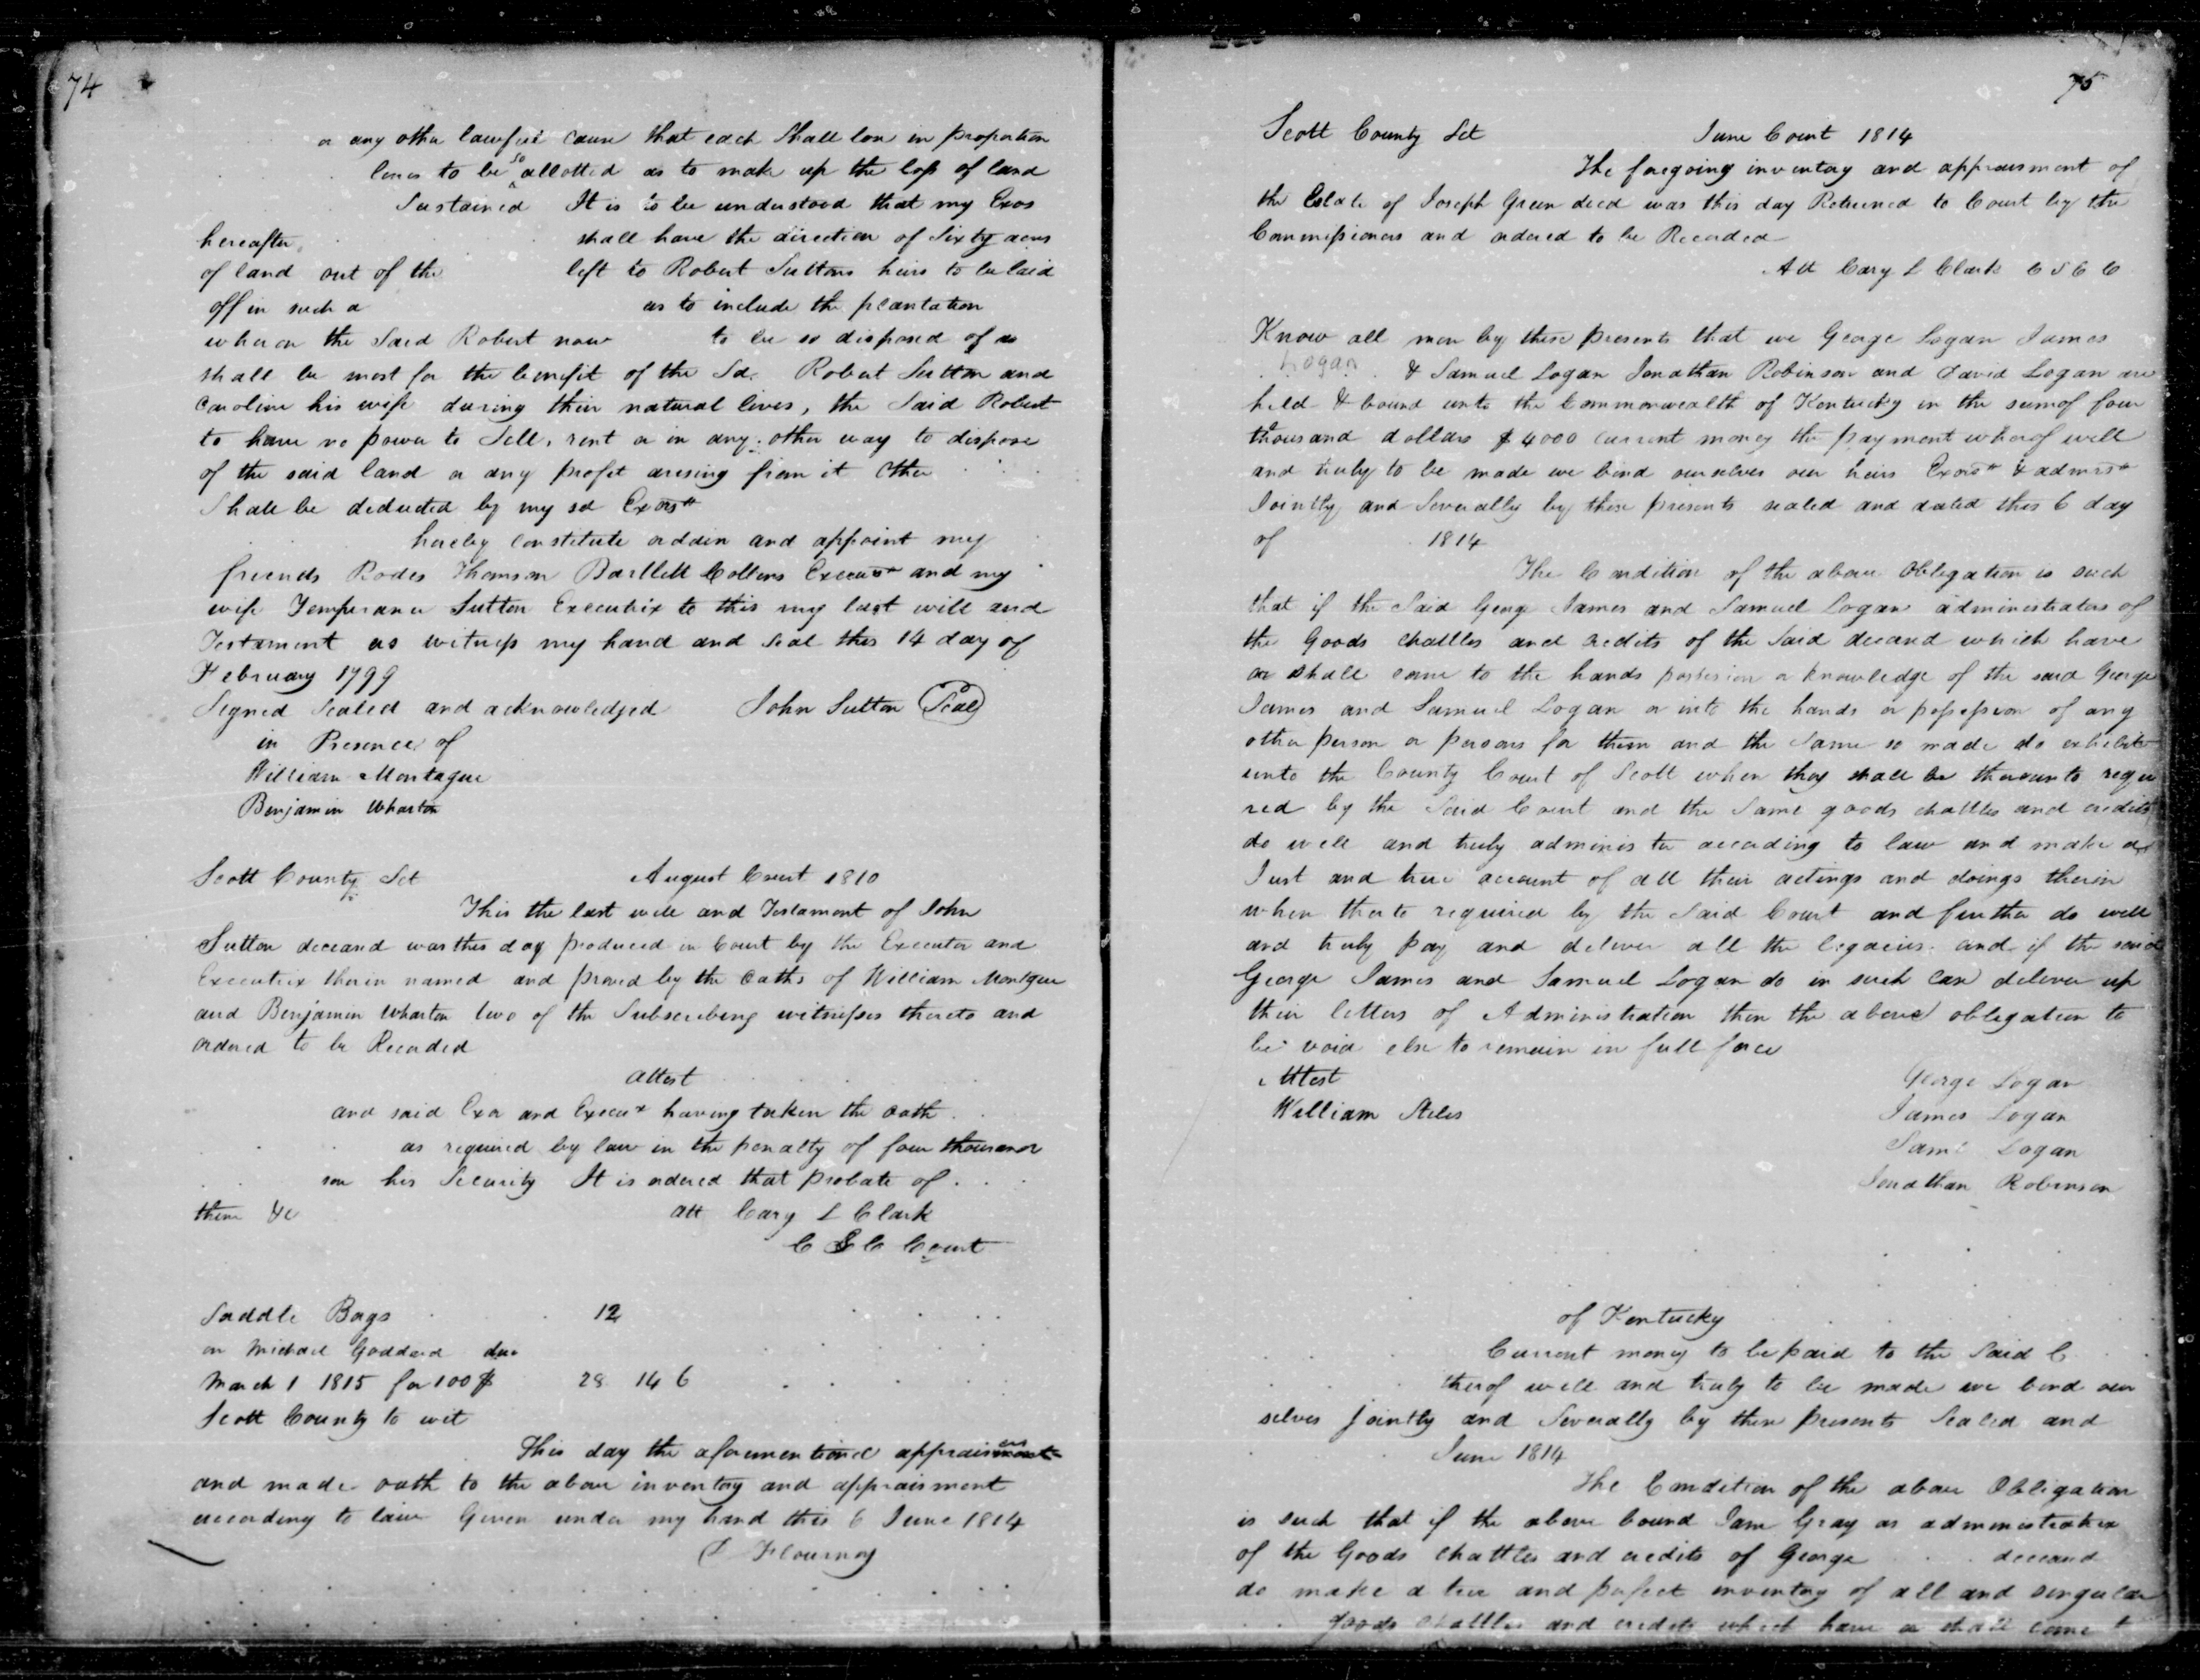 74
or any other lawfull cause that each shall lose in proportion
lines to be so allotted as to make up the loss of land
Sustained It is to be understood that my Exos
hereafter shall have the direction of Sixty acres
of land out of the left to Robert Suttons heirs to be laid
off in such a as to include the plantation
whereon the Said Robert now to be so disposed of as
shall be most for the benefit of the Sd. Robert Sutton and
Caroline his wife during their natural lives, the Said Robert
to have no power to Sell, rent or in any other way to dispose
of the said land or any profit arising from it other
Shall be deducted by my sd Exors
hereby constitute ordain and appoint my
friends Rodes Thomson Bartlett Collins Execurs and my
wife Temperance Sutton Executrix to this my last will and
Testament as witness my hand and Seal this 14 day of
February 1799
Signed Sealed and acknowledged John Sutton Seal
in Presence of
William Montague
Benjamin Wharton
Scott County Sct August Court 1810
This the last will and Testament of John
Sutton deceasd was this day produced in Court by the Executor and
Executrix therein named and proved by the Oaths of William Montgue
and Benjamin Wharton two of the Subscribing witnesses thereto and
ordered to be Recorded
attest
and said Exor and Execux having taken the oath
as required by law in the penalty of four thousand
son his Security It is ordered that probate of
them &c att Cary L Clark
C S C Court
Saddle Bags 12
on Michael Goddard due
March 1 1815 for 100 $ 28 14 6
Scott County to wit
This day the aforementioned appraisers
and made oath to the above inventory and appraisment
according to law Given under my hand this 6 June 1814
Flournoy
75
Scott County Sct June Court 1814
The foregoing inventory and appraisment of
the Estate of Joseph Green decd was this day Returned to Court by the
Commissioners and ordered to be Recorded
Att Cary L Clark C S C C
Know all men by these presents that we George Logan James
Logan & Samuel Logan Jonathan Robinson and David Logan are
held & bound unto the Commonwealth of Kentucky in the sum of four
thousand dollars $ 4000 current money the payment whereof well
and truly to be made we bind ourselves our heirs Exors & admrs
Jointly and Severally by these presents sealed and dated this 6 day
of 1814
The Condition of the above Obligation is such
that if the Said George James and Samuel Logan administrators of
the Goods chattles and credits of the Said deceasd which have
or shall come to the hands possesion or knowledge of the said George
James and Samuel Logan or into the hands or possession of any
other person or persons for them and the Same so made do exhibit
unto the County Court of Scott when they shall be thereunto requi
red by the Said Court and the Same goods chattles and credits
do well and truly administer according to law and make a
Just and true account of all their actings and doings therein
when thereto required by the Said Court and further do well
and truly pay and deliver all the legacies and if the said
George James and Samuel Logan do in such case deliver up
their letters of Administration then the above obligation to
be void else to remain in full force
Attest George Logan
William Stiles James Logan
Saml Logan
Jonathan Robinson
of Kentucky
Current money to be paid to the Said C
thereof well and truly to be made we bind our
selves jointly and Severally by these presents Sealed and
June 1814
The Condition of the above Obligation
is such that if the above bound Jane Gray as administratrix
of the Goods chattles and credits of George deceasd
do make a true and perfect inventory of all and singular
goods chattles and credits which have or shall come t